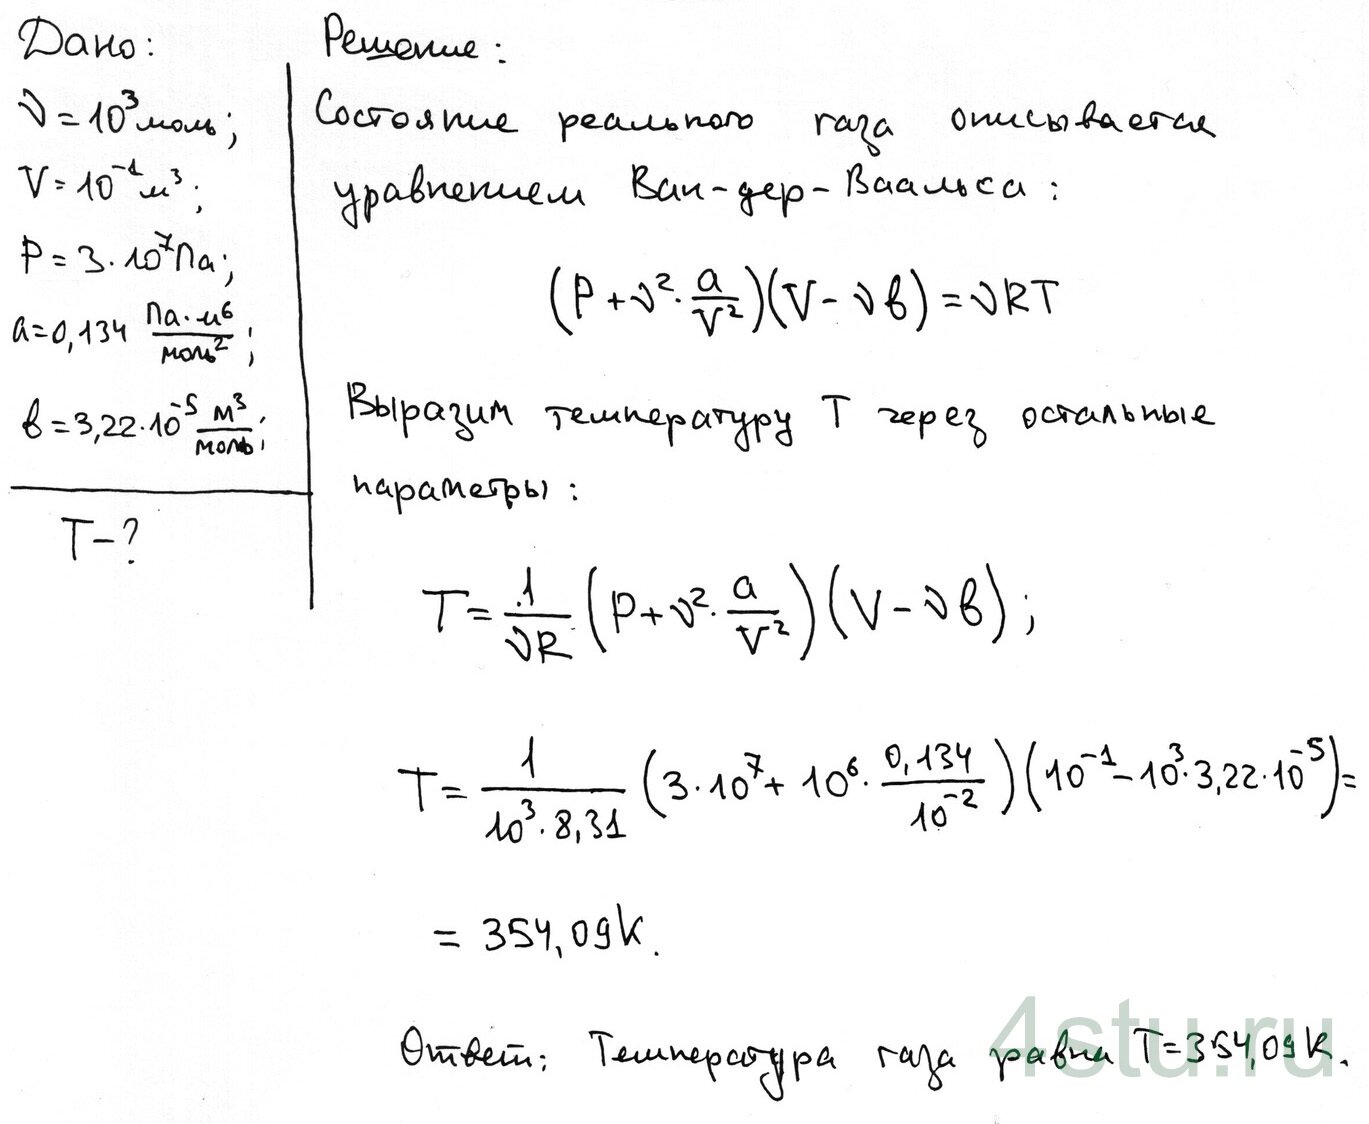 Дано:
ν = 10³ моль;
V = 10⁻¹ м³;
P = 3·10⁷ Па;
a = 0,134 Па·м⁶/моль²;
в = 3,22·10⁻⁵ м³/моль;
T – ?
Решение:
Состояние реального газа описывается
уравнением Ван-дер-Ваальса:
(P + ν²·a/V²)(V – νв) = νRT
Выразим температуру T через остальные
параметры:
T = 1/νR (P + ν²·a/V²)(V – νв);
T = 1/10³·8,31 (3·10⁷ + 10⁶·0,134/10⁻²)(10⁻¹ – 10³·3,22·10⁻⁵) =
= 354,09 K.
Ответ: Температура газа равна T = 354,09 K.
4stu.ru